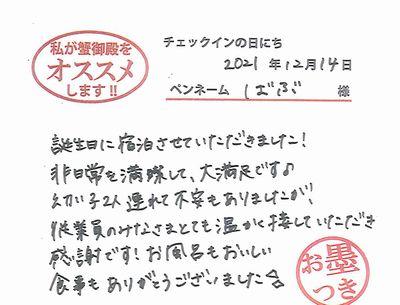 私が蟹御殿を
オススメ
します!!
チェックインの日にち
2021 年 12月 14日
ペンネーム しばふ 様
誕生日に宿泊させていただきました!
非日常を満喫して、大満足です♪
幼い子2人連れて不安もありましたが、
従業員のみなさまとても温かく接していただき
感謝です!お風呂もおいしい
食事もありがとうございました☆
お墨
つき